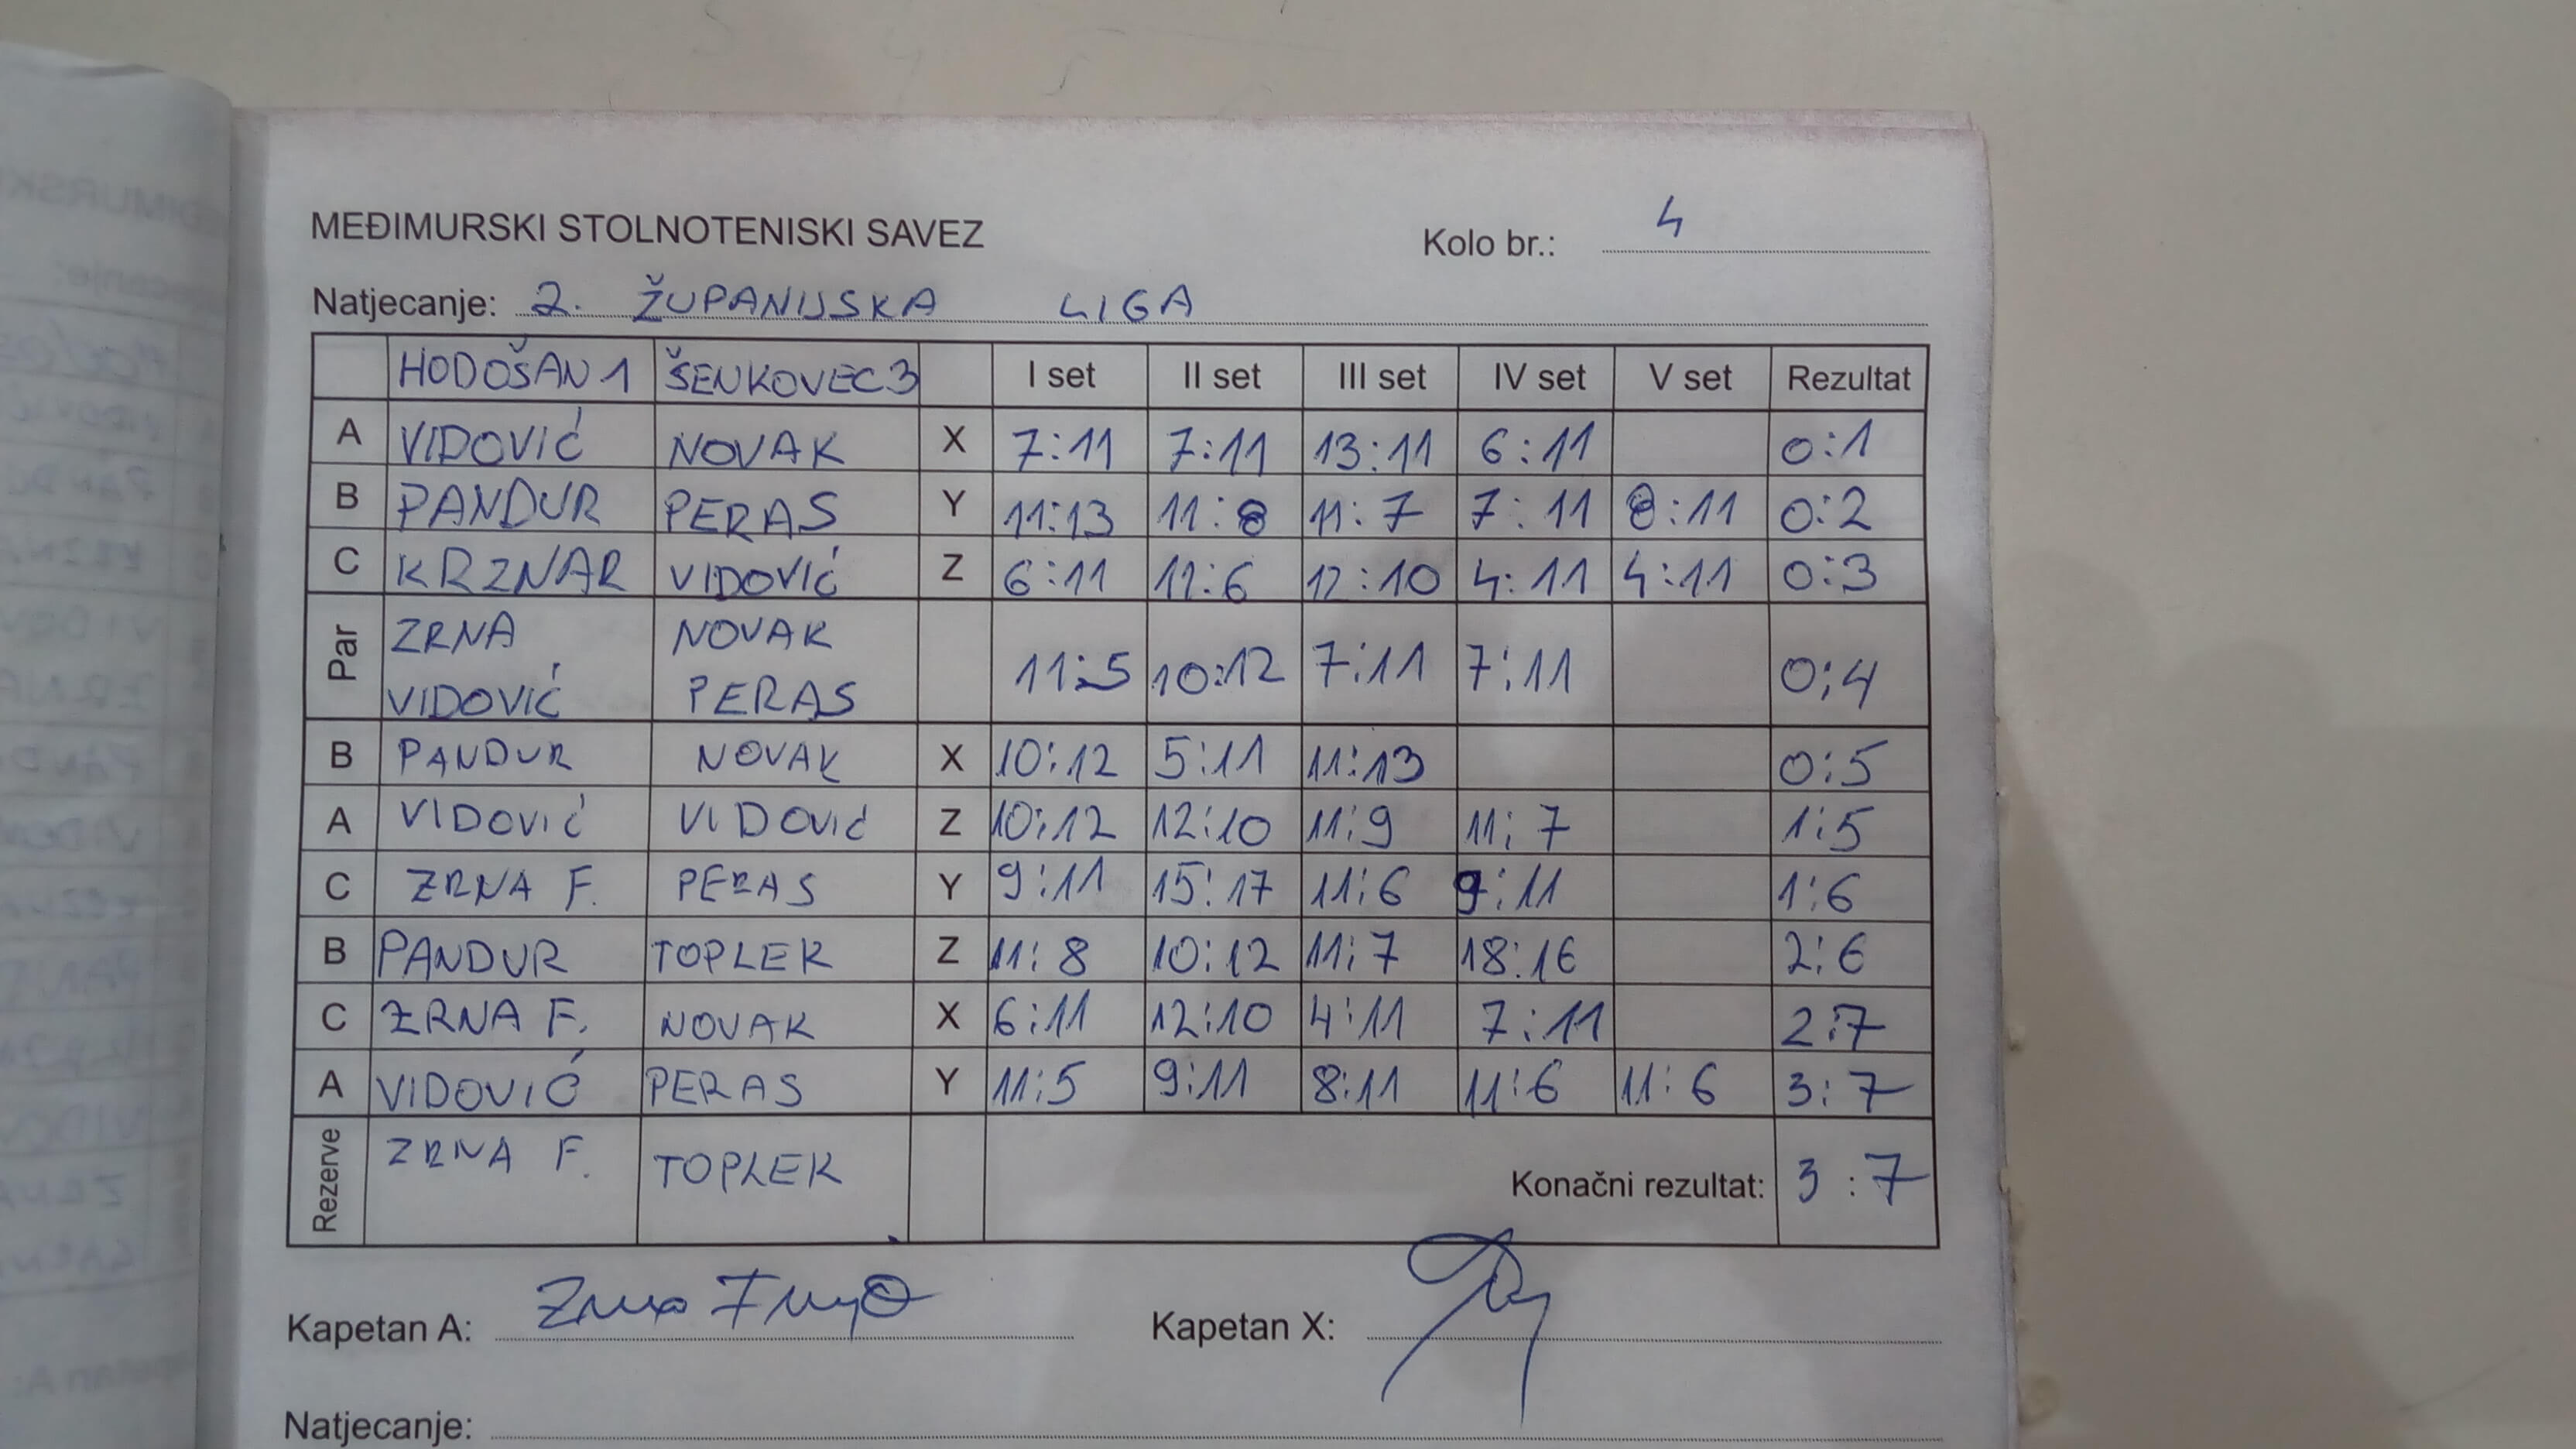 MEĐIMURSKI STOLNOTENISKI SAVEZ Kolo br.: 4
Natjecanje: 2. ŽUPANIJSKA LIGA
HODOŠAN 1 ŠENKOVEC 3 I set II set III set IV set V set Rezultat
A VIDOVIĆ NOVAK X 7:11 7:11 13:11 6:11 0:1
B PANDUR PERAS Y 11:13 11:8 11:7 7:11 8:11 0:2
C KRZNAR VIDOVIĆ Z 6:11 11:6 12:10 4:11 4:11 0:3
Par ZRNA VIDOVIĆ NOVAK PERAS 11:5 10:12 7:11 7:11 0:4
B PANDUR NOVAK X 10:12 5:11 11:13 0:5
A VIDOVIĆ VIDOVIĆ Z 10:12 12:10 11:9 11:7 1:5
C ZRNA F. PERAS Y 9:11 15:17 11:6 9:11 1:6
B PANDUR TOPLEK Z 11:8 10:12 11:7 18:16 2:6
C ZRNA F. NOVAK X 6:11 12:10 4:11 7:11 2:7
A VIDOVIĆ PERAS Y 11:5 9:11 8:11 11:6 11:6 3:7
Rezerve ZRNA F. TOPLEK Konačni rezultat: 3:7
Kapetan A: Kapetan X:
Natjecanje: